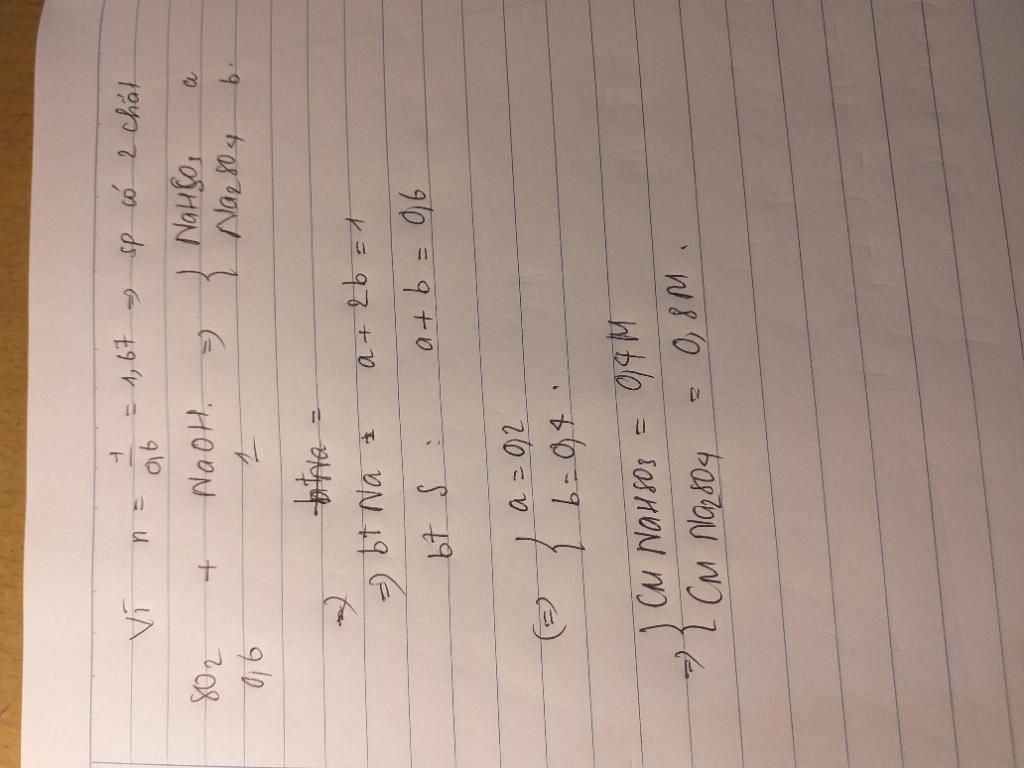 Vì n = 1/0,6 = 1,67 => sp có 2 chất
SO2 + NaOH. => { NaHSO3 a
0,6 1 Na2SO4 b.
=> btNa =
=> bt Na : a + 2b = 1
bt S : a + b = 0,6
(=> { a = 0,2
b = 0,4.
=> { CM NaHSO3 = 0,4M
CM Na2SO4 = 0,8M.